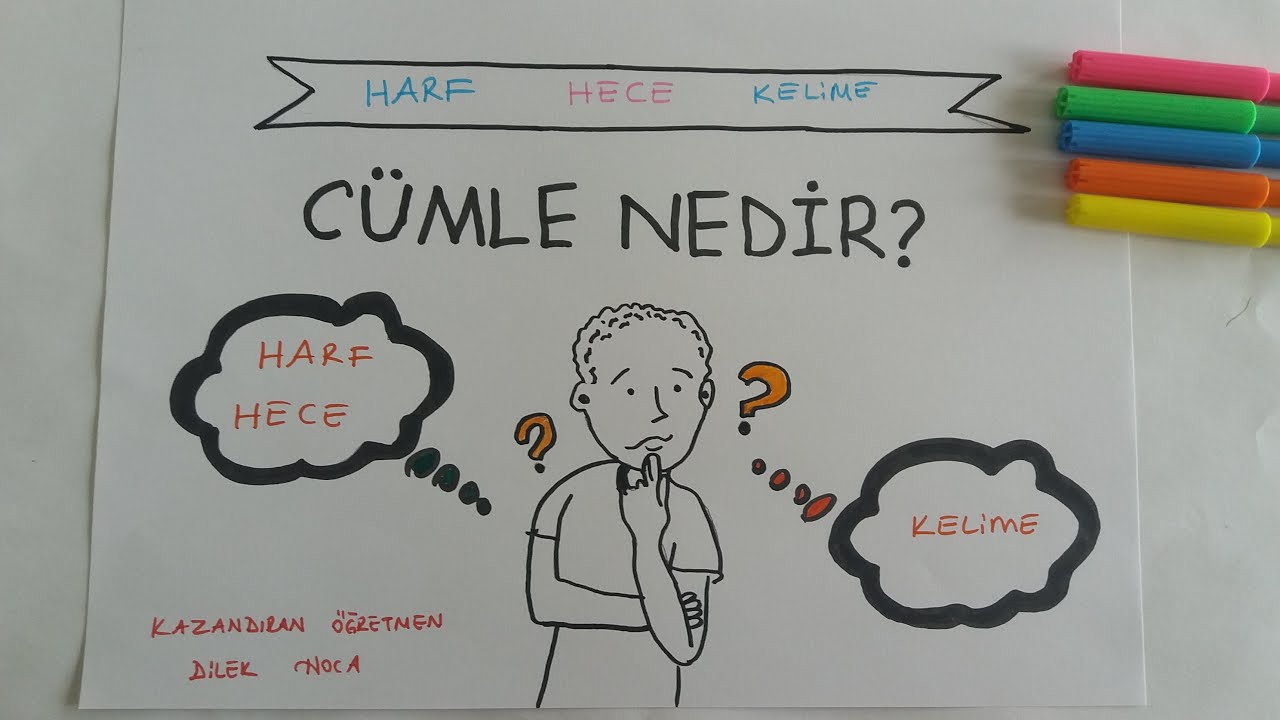 HARF HECE KELİME
CÜMLE NEDİR?
HARF
HECE
KELİME
KAZANDIRAN ÖĞRETMEN
DİLEK HOCA